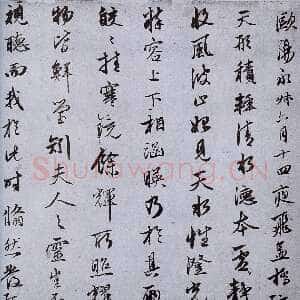 歐陽永叔六月十四夜飛蓋橋
天形積輕清水德本虛靜
收風波止始見天水性澄光
粹容上下相涵暎乃於其兩
皎〻挂寒鏡餘輝所照耀
物皆鮮瑩矧夫人之靈豈
視聽而我於此時翛然發
Shufawang.CN